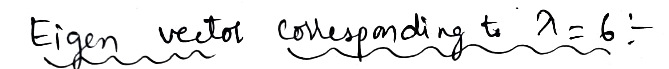 Eigen vector corresponding to λ = 6 :-